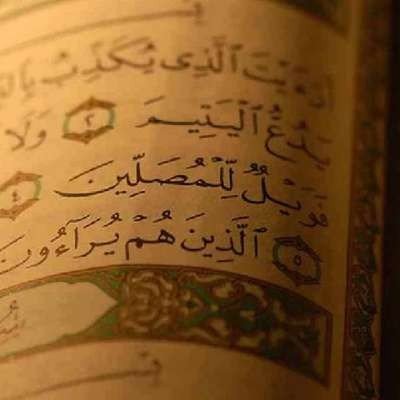 أَرَءَيْتَ ٱلَّذِى يُكَذِّبُ
يَدُعُّ ٱلْيَتِيمَ ٢ وَلَا
فَوَيْلٌ لِّلْمُصَلِّينَ ٤
٥ ٱلَّذِينَ هُمْ يُرَآءُونَ